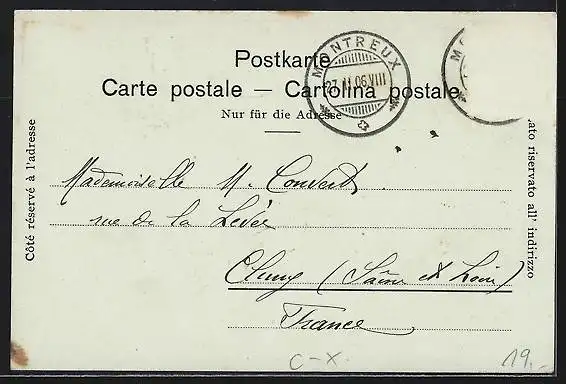 Postkarte
Carte postale — Cartolina postale
Nur für die Adresse
MONTREUX
27.II.06.VIII
MO
Côté réservé à l'adresse
ato riservato all' indirizzo
Mademoiselle M. Convert
rue de la Levée
Cluny (Saône et Loire)
France
C-X.
19.-